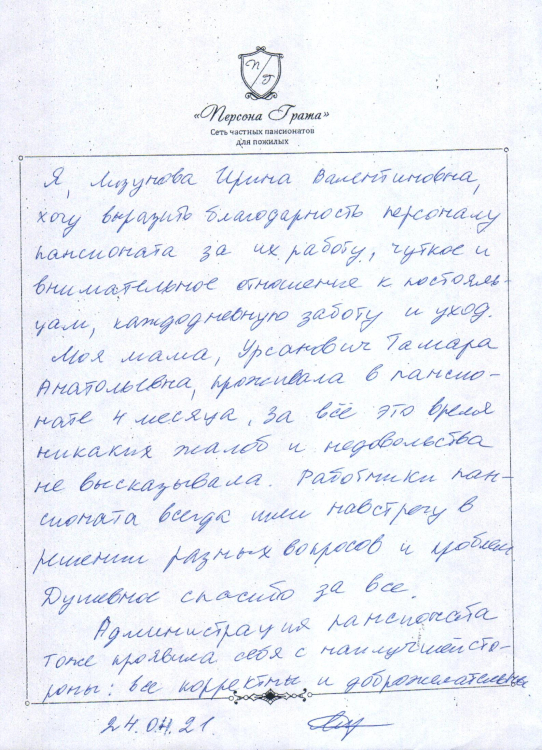 П/Г
«Персона Грата»
Сеть частных пансионатов
для пожилых
Я, Лизунова Ирина Валентиновна,
хочу выразить благодарность персоналу
пансионата за их работу, чуткое и
внимательное отношение к постояль-
цам, каждодневную заботу и уход.
Моя мама, Урсанович Тамара
Анатольевна, проживала в пансио-
нате 4 месяца, за всё это время
никаких жалоб и недовольства
не высказывала. Работники пан-
сионата всегда шли навстречу в
решении разных вопросов и проблем
Душевное спасибо за все.
Администрация пансионата
тоже проявила себя с наилучшей сто-
роны: все корректны и доброжелательны
24.04.21.